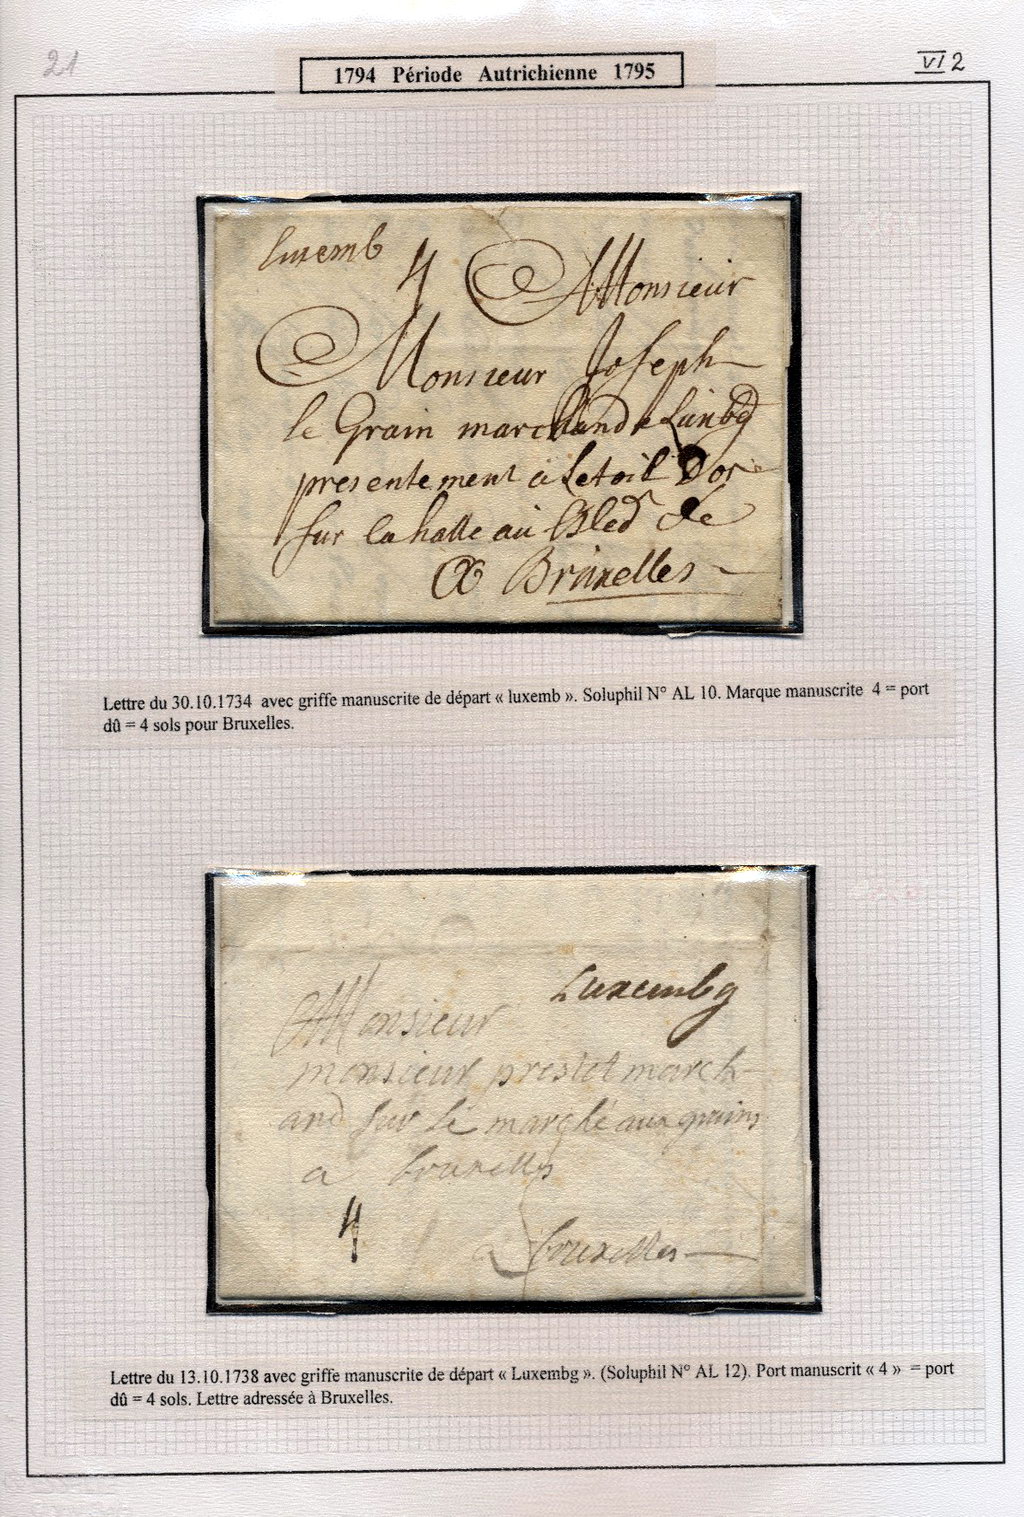 21
1794 Période Autrichienne 1795
VI 2
luxemb
4 Monsieur
Monsieur Joseph
le Grain marchand a Luxbg
presentement a Letoil Dor
sur la halle au Bled de
a Bruxelles
Lettre du 30.10.1734 avec griffe manuscrite de départ « luxemb ». Soluphil N° AL 10. Marque manuscrite 4 = port
dû = 4 sols pour Bruxelles.
Luxembg
Monsieur
monsieur prestet march-
and sur le marché aux grains
a bruxelles
4
bruxelles
Lettre du 13.10.1738 avec griffe manuscrite de départ « Luxembg ». (Soluphil N° AL 12). Port manuscrit « 4 » = port
dû = 4 sols. Lettre adressée à Bruxelles.